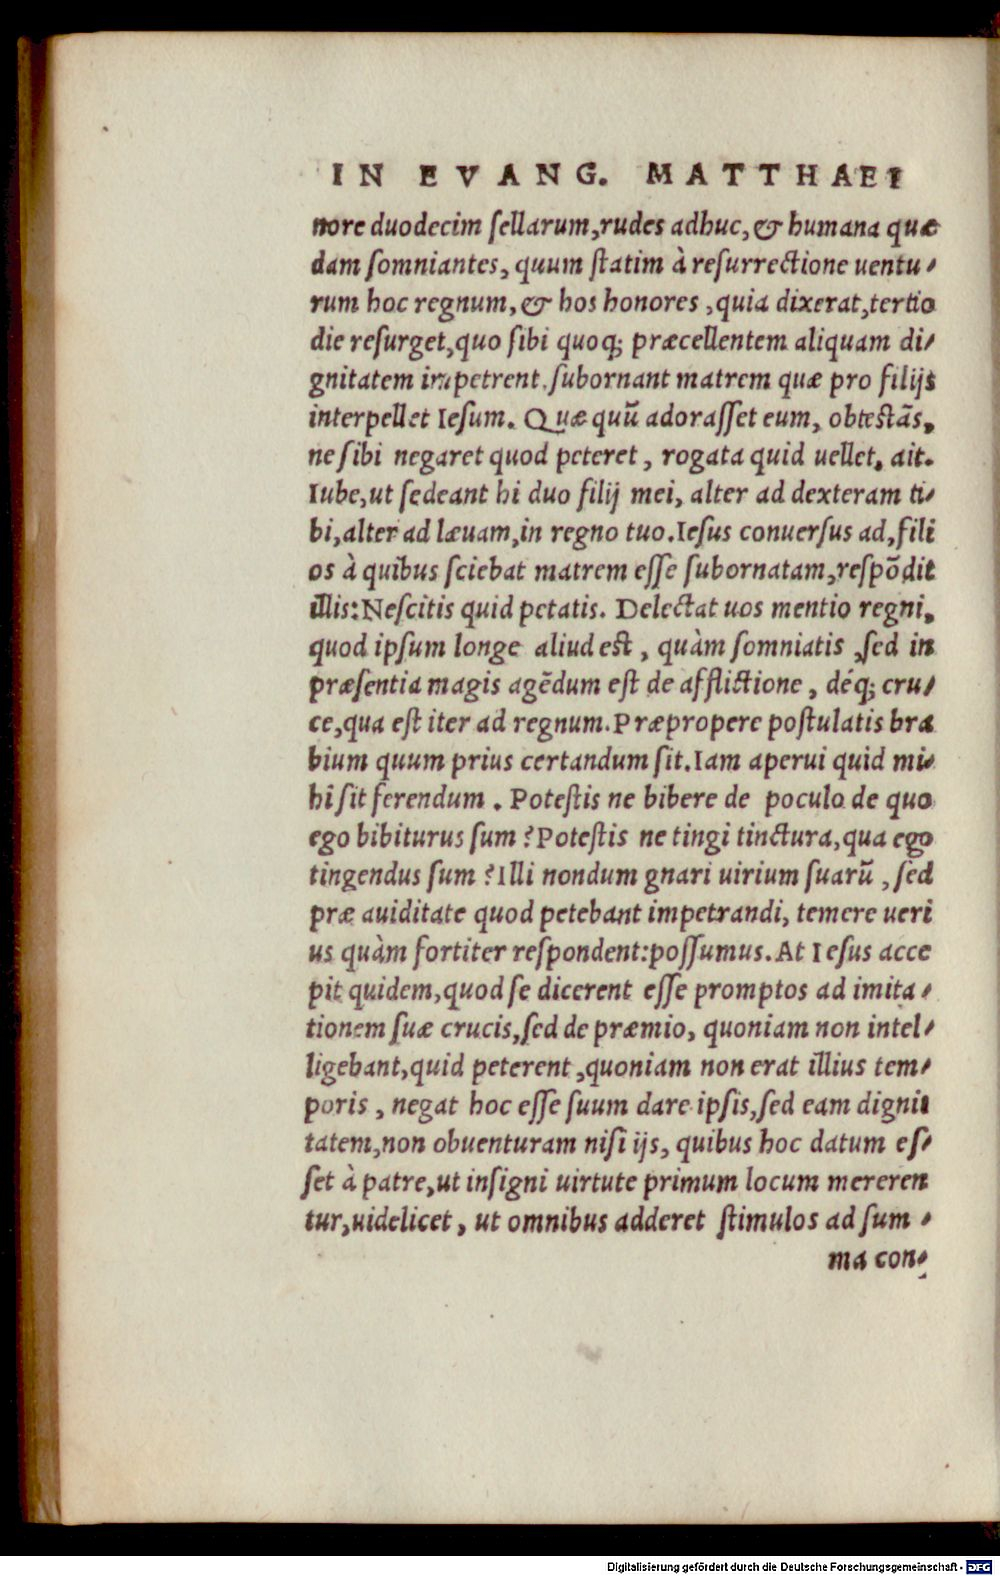 IN EVANG. MATTHAEI
nore duodecim ſellarum,rudes adhuc,& humana quæ
dam ſomniantes, quum ſtatim à reſurrectione uentu-
rum hoc regnum, & hos honores ,quia dixerat,tertio
die reſurget,quo ſibi quoq; præcellentem aliquam di-
gnitatem impetrent, ſubornant matrem quæ pro filijs
interpellet Ieſum. Quæ quũ adoraſſet eum, obteſtãs,
ne ſibi negaret quod peteret, rogata quid uellet, ait.
Iube,ut ſedeant hi duo filij mei, alter ad dexteram ti-
bi,alter ad læuam,in regno tuo.Ieſus conuerſus ad,fili
os à quibus ſciebat matrem eſſe ſubornatam,reſpõdit
illis:Neſcitis quid petatis. Delectat uos mentio regni,
quod ipſum longe aliud eſt, quàm ſomniatis ,ſed in
præſentia magis agẽdum eſt de afflictione, déq; cru-
ce,qua eſt iter ad regnum.Præpropere poſtulatis bra
bium quum prius certandum ſit.Iam aperui quid mi-
hi ſit ferendum . Poteſtis ne bibere de poculo de quo
ego bibiturus ſum ?Poteſtis ne tingi tinctura,qua ego
tingendus ſum ?Illi nondum gnari uirium ſuarũ , ſed
præ auiditate quod petebant impetrandi, temere ueri
us quàm fortiter reſpondent:poſſumus.At Ieſus acce
pit quidem,quod ſe dicerent eſſe promptos ad imita-
tionem ſuæ crucis,ſed de præmio, quoniam non intel-
ligebant,quid peterent ,quoniam non erat illius tem-
poris , negat hoc eſſe ſuum dare ipſis,ſed eam digni-
tatem,non obuenturam niſi ijs, quibus hoc datum eſ-
ſet à patre,ut inſigni uirtute primum locum mereren
tur,uidelicet, ut omnibus adderet ſtimulos ad ſum-
ma con-
Digitalisierung gefördert durch die Deutsche Forschungsgemeinschaft - DFG